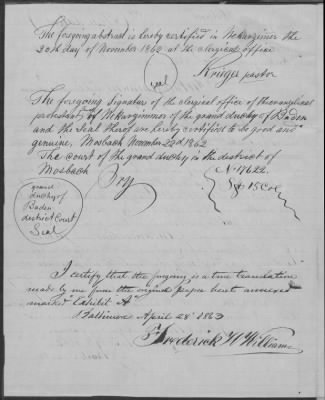 The foregoing abstract is hereby certified in Neckargimer the
20th day of November 1862 at the clergical office
Krieger pastor
seal
The foregoing signature of the clergical office of the evangelical
protestant of Neckargimmer of the grand duchy of Baden
and the Seal thereof are hereby certified to be good and
genuine, Mosbach November 22d 1862
The court of the grand duchy in the district of
Mosbach
No 17622.
15 Co
grand
duchy of
Baden
district Court
Seal
I certify that the forgoing is a true translation
made by me from the original paper hereto annexed
marked "Exhibit A"
Baltimore April 28th 1863
Frederick W Williams